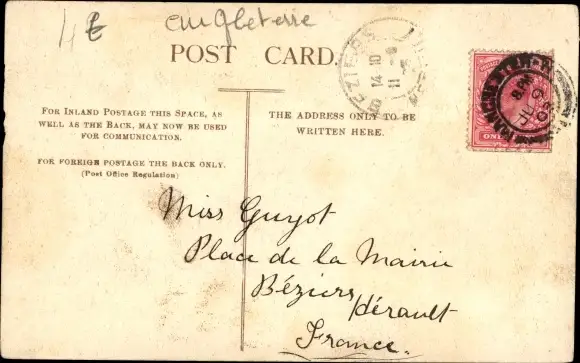 4 £
angleterre
POST CARD.
BEZIERS
14 10
11
HERAULT
MANCHESTER
8 PM
JU 9
03
ONE
FOR INLAND POSTAGE THIS SPACE, AS
WELL AS THE BACK, MAY NOW BE USED
FOR COMMUNICATION.
FOR FOREIGN POSTAGE THE BACK ONLY.
(Post Office Regulation)
THE ADDRESS ONLY TO BE
WRITTEN HERE.
Miss Guyot
Place de la Mairie
Béziers
hérault
France.